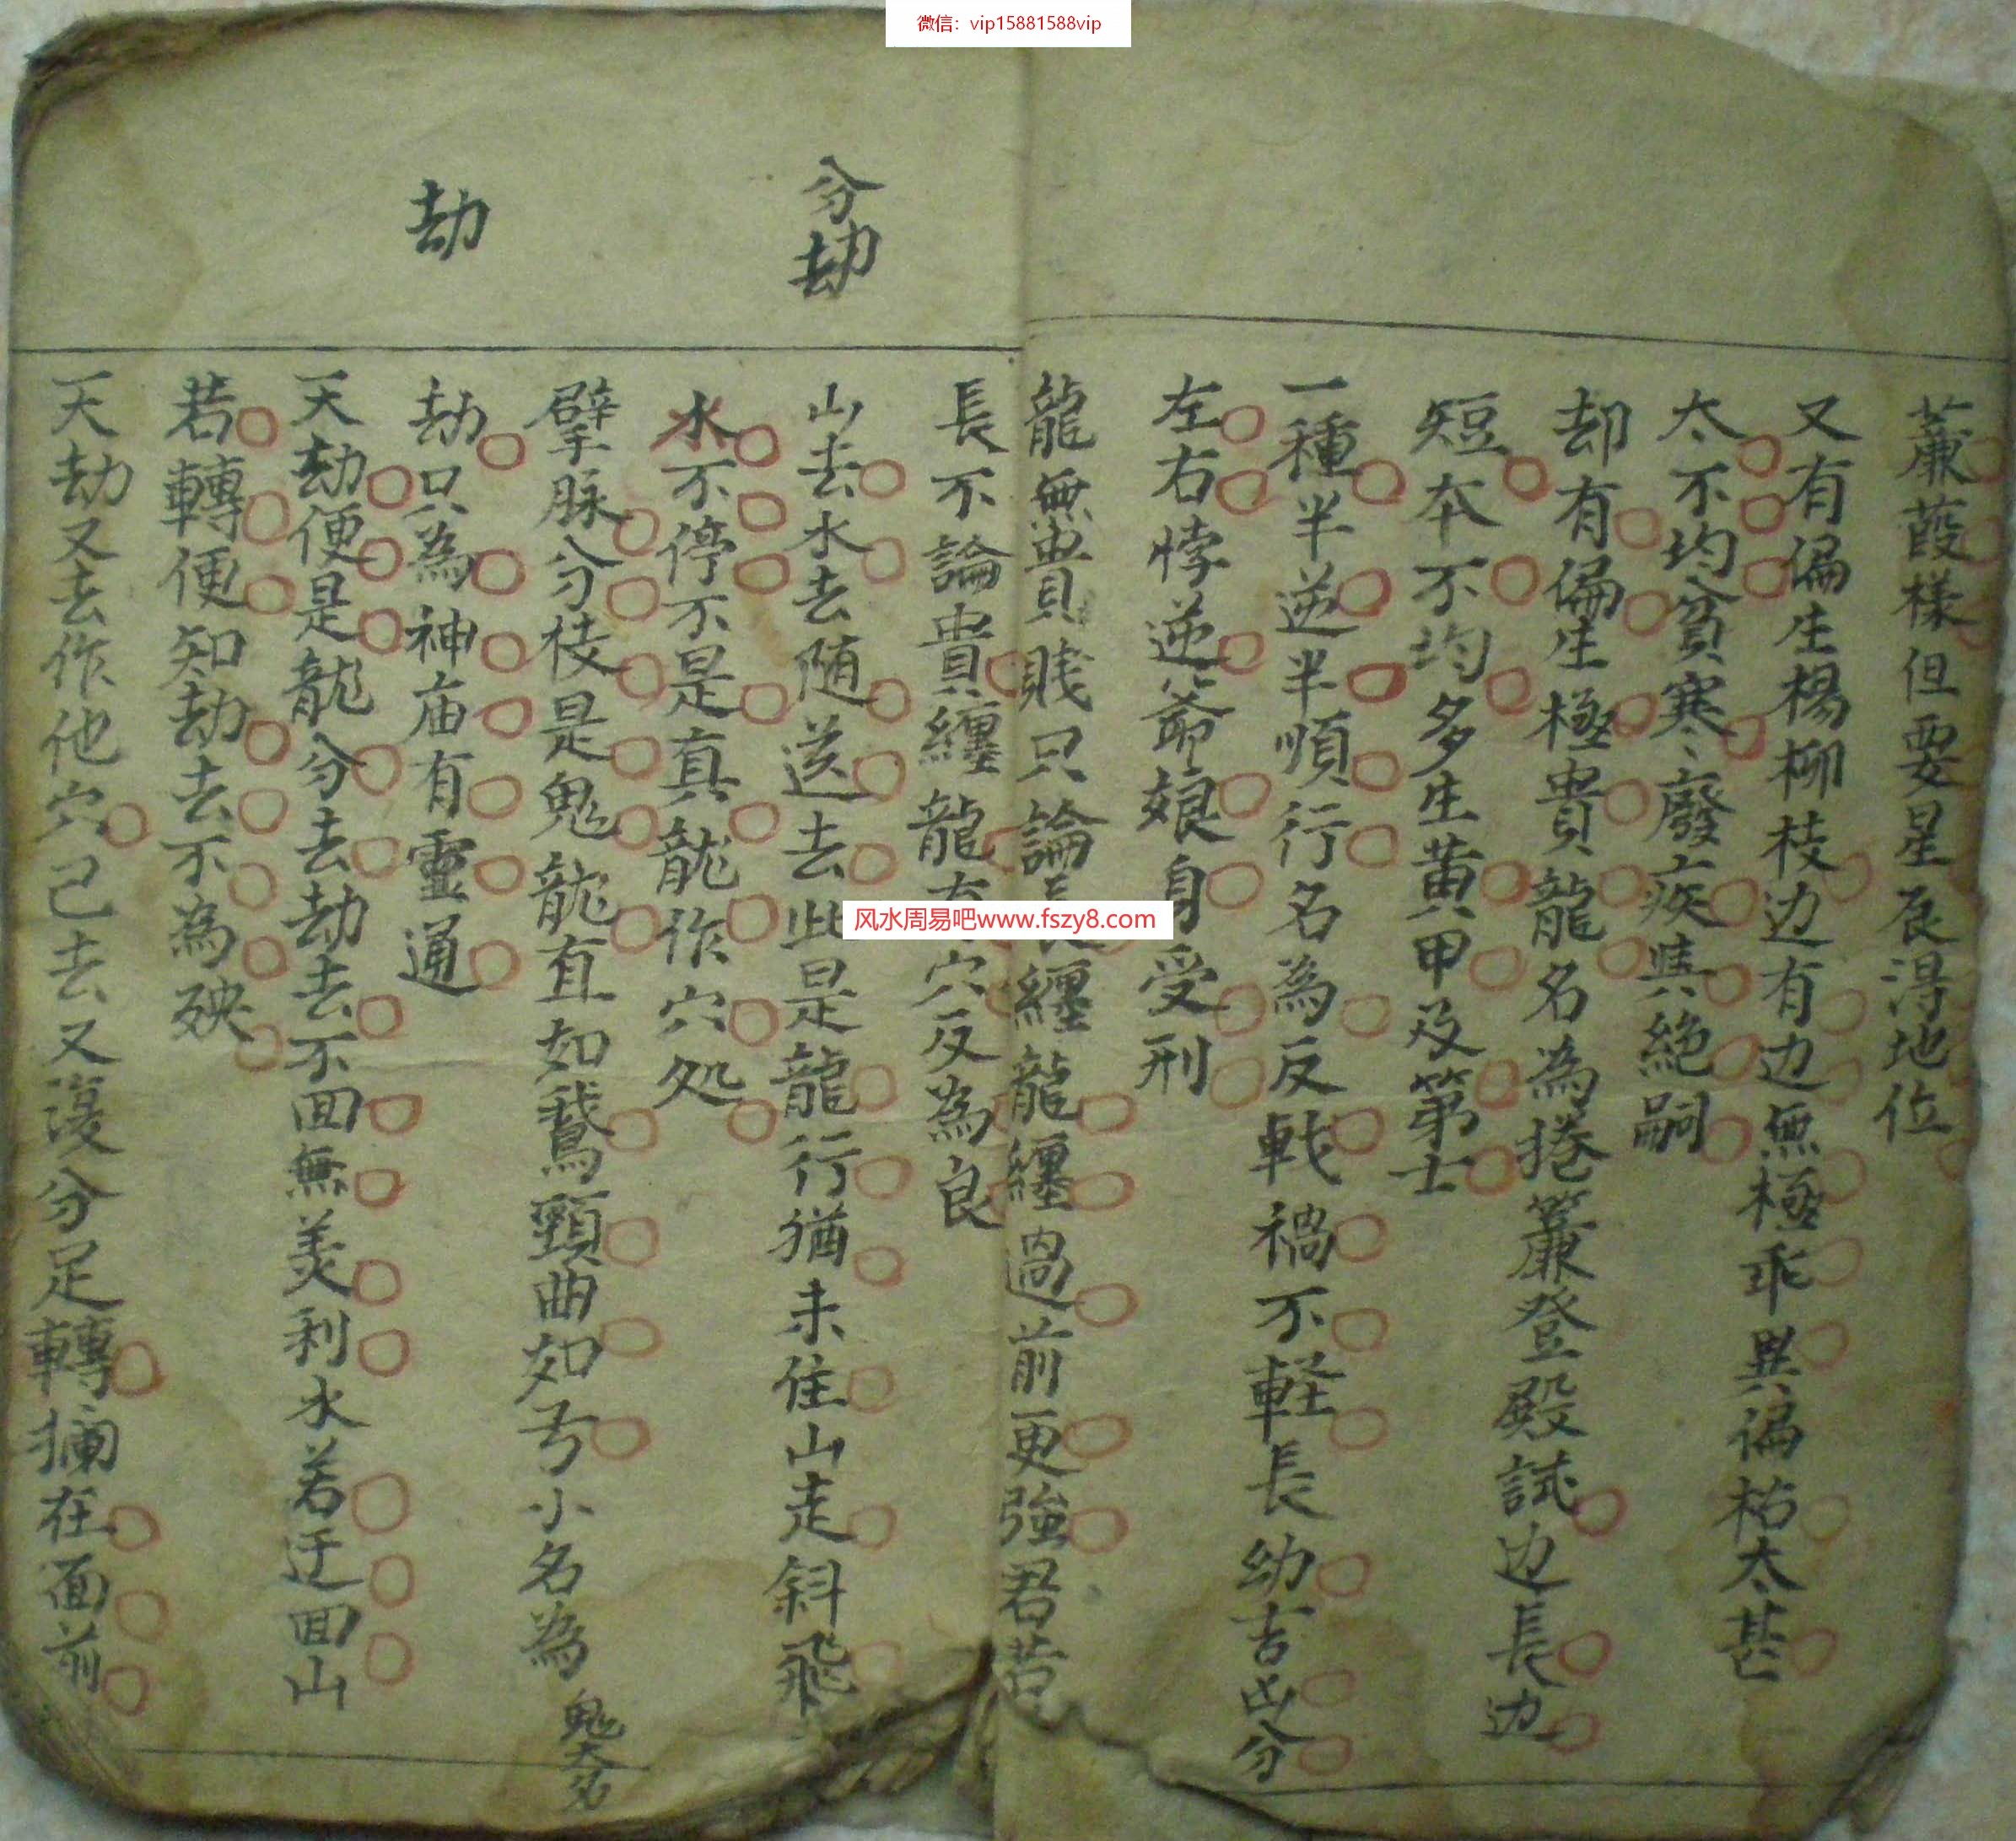 微信：vip15881588vip
蒹葭樣但要星辰得地位
又有偏生楊柳枝边有边無極乖異偏枯太甚
太不均貧寒廢疾與絕嗣
却有偏生極貴龍名為捲簾登殿試边長边
短本不均多生黄甲及第士
一種半逆半順行名為反戟禍不軽長幼吉凶分
左右悖逆爺娘身受刑
龍無貴賤只論長纏龍纏過前更強君若
長不論貴纏龍有穴反為良
分劫
山去水去随送去此是龍行猶未住山走斜飛
水不停不是真龍作穴処
擘脉分枝是鬼龍直如鵞頸曲如弓小名為鬼大名
劫
劫只為神庙有靈通
天劫便是龍分去劫去不回無美利水若迂回山
若轉便知劫去不為殃
天劫又去作他穴己去又復分足轉攔在面前
风水周易吧www.fszy8.com